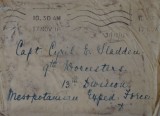 10.30 AM
Capt Cyril E. Sladden
9th Worcesters
13th Division
Mesopotamian Exped. Force